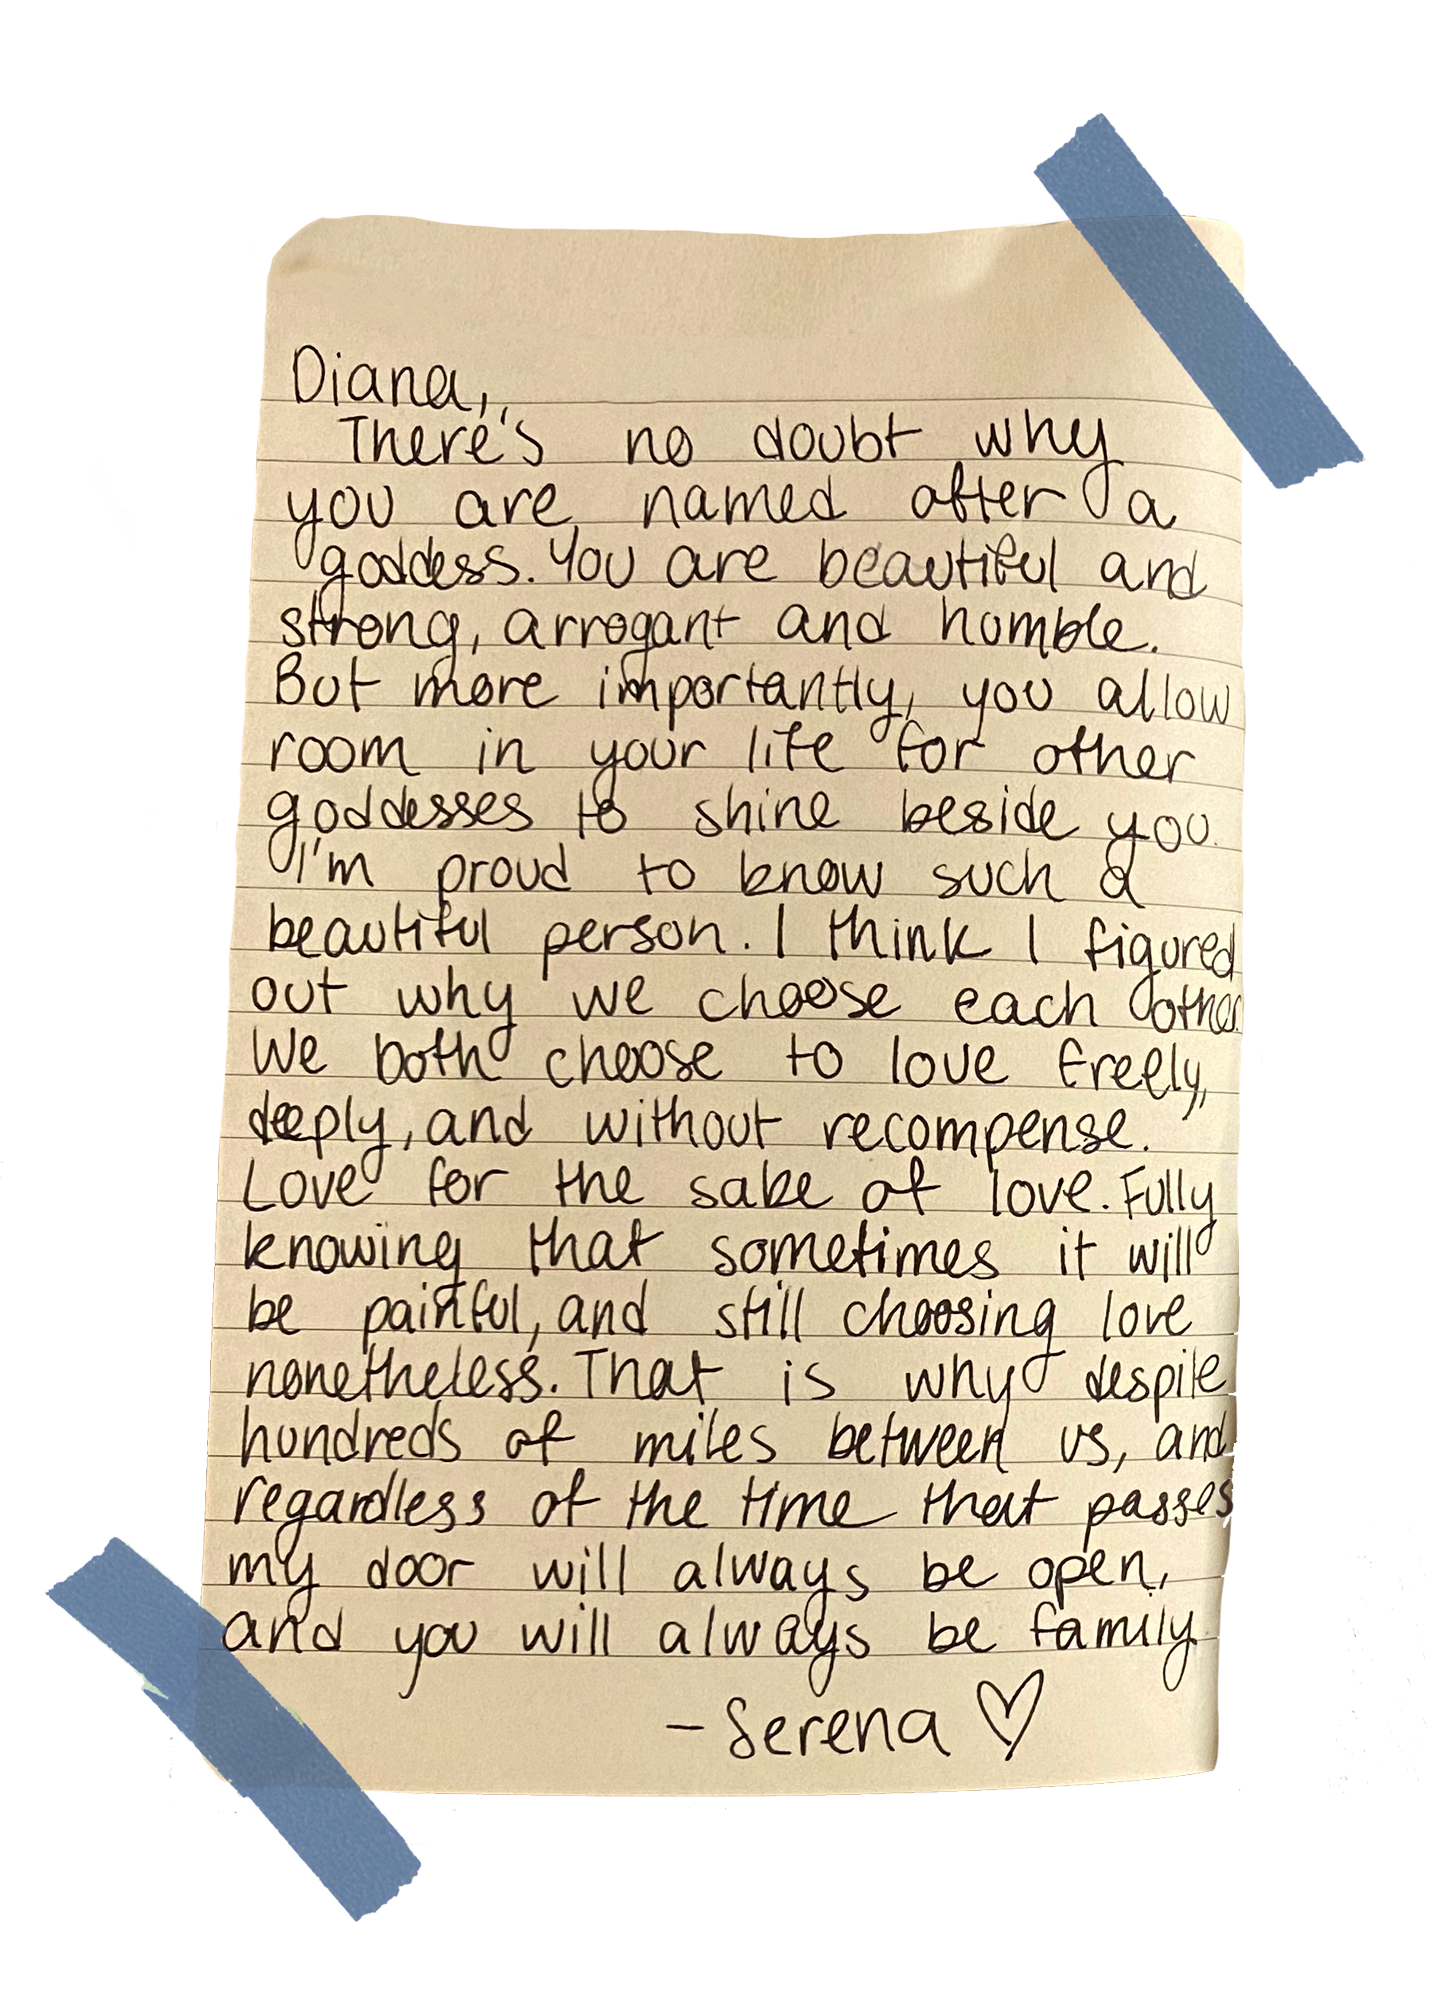 Diana,
There's no doubt why
you are named after a
goddess. You are beautiful and
strong, arrogant and humble.
But more importantly, you allow
room in your life for other
goddesses to shine beside you.
I'm proud to know such a
beautiful person. I think I figured
out why we choose each other.
We both choose to love freely,
deeply, and without recompense.
Love for the sake of love. Fully
knowing that sometimes it will
be painful, and still choosing love
nonetheless. That is why despite
hundreds of miles between us, and
regardless of the time that passes
my door will always be open,
and you will always be family
- Serena ♡